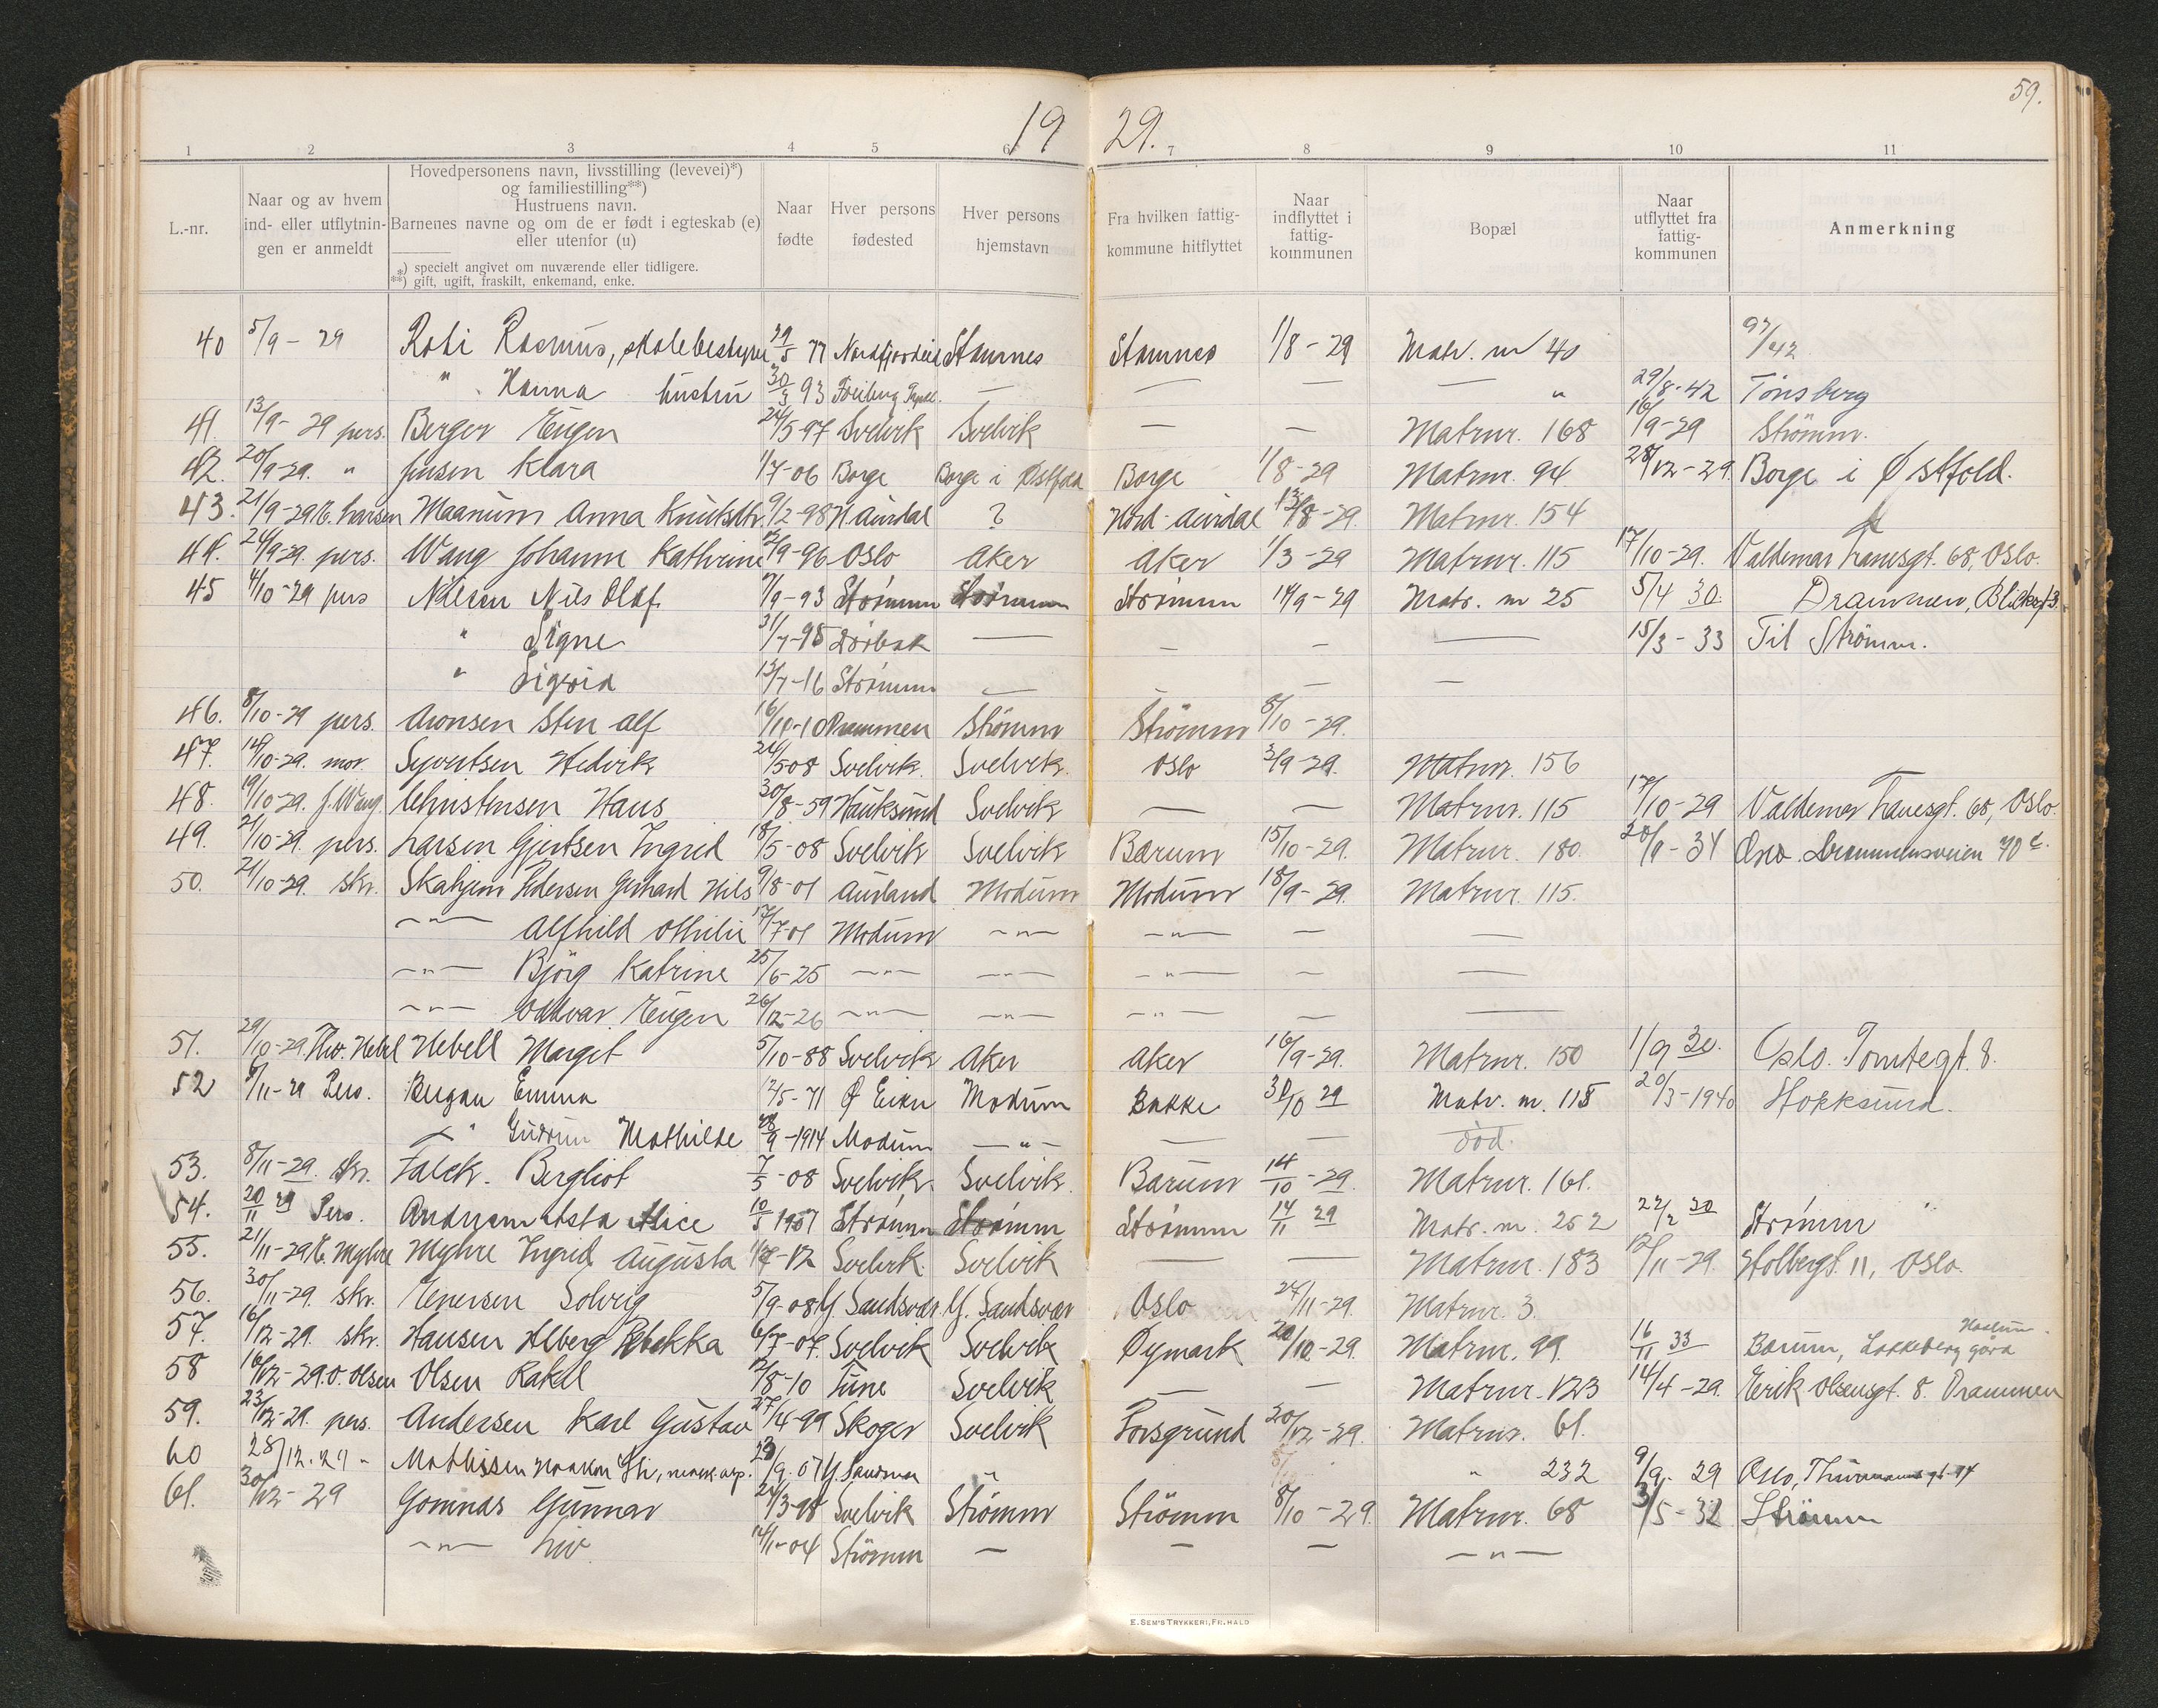 59.
19 29.
1 2 3 4 5 6 7 8 9 10 11
L.-nr.
Naar og av hvem
ind- eller utflytnin-
gen er anmeldt
Hovedpersonens navn, livsstilling (levevei)*)
og familiestilling**)
Hustruens navn.
Barnenes navne og om de er født i egteskab (e)
eller utenfor (u)
*) specielt angivet om nuværende eller tidligere.
**) gift, ugift, fraskilt, enkemand, enke.
Naar
fødte
Hver persons
fødested
Hver persons
hjemstavn
Fra hvilken fattig-
kommune hitflyttet
Naar
indflyttet i
fattig-
kommunen
Bopæl
Naar
utflyttet fra
fattig-
kommunen
Anmerkning
40 5/9-29 Rasmus, skolebestyrer 29/5 77 Nordfjordeid Stamnes Stamnes 1/8-29 Matr. nr 40 97/42
" Hanna hustru 30/3 93 — — — — " 29/8-42 Tönsberg
41. 13/9-29 pers. Berger Eugen 24/5-97 Svelvik Svelvik — — Matrnr. 168 16/9-29 Strömm.
42. 20/9-29. " Jensen Klara 1/7-06 Borge Borge i Østfold Borge 1/8-29 Matrnr. 94 28/12-29. Borge i Østfold.
43. 21/9-29 Larsen Maanum Anna Knutsdtr. 9/2-98 N Aurdal ? Nord-Aurdal 13/8-29. Matrnr. 154
44. 24/9-29. pers. Wang Johanne Kathrine 12/9-96 Oslo Aker Aker 1/3-29 Matrnr. 115 17/10-29. Valdemar Tranesgt. 68, Oslo.
45 4/10-29 pers Nilsen Nils Olaf 7/9-93 Strömm Strömm Strömm 14/9-29 Matr. nr 25 5/4 30. Drammen,
" Signe 31/7-95 Dröbak — — — — 15/3-33 Til Strömm.
" Sigrid 13/7-16 Strömm — — — —
46. 8/10-29 pers. Aronsen Sten Alf 16/10-10 Drammen Strömm Strömm 8/10-29.
47. 14/10-29. mor. Syvertsen Hedvik 24/5 08 Svelvik. Svelvik. Oslo 3/9-29. Matrnr. 156
48. 19/10-29. J. Wang Christensen Hans 30/8-59 Hauksund Svelvik — — Matrnr. 115 17/10-29 Valdemar Tranesgt. 68, Oslo.
49. 21/10-29. pers. Larsen Gjertsen Ingrid 18/5-08 Svelvik Svelvik Bærum 15/10-29. Matrnr. 180. 20/9-34 Oslo Drammensveien 70 c.
50. 21/10-29. skr. Skahjem Pedersen Gerhard Nils 9/8-01 Aurland Modum Modum 18/9-29. Matrnr. 115.
—"— Alfhild Othilie 17/7-01 Modum —"— —"— — —
—"— Bjørg Katrine 25/6-25 —"— —"— —"— — —
—"— Oddvar Eugen 26/12-26 —"— —"— —"— — —
51. 29/10-29. Thv. Hebel Hebell Margit 5/10-88 Svelvik Aker Aker 16/9-29. Matrnr. 150 1/9 30. Oslo. Tomtegt. 8.
52 /11-29 Pers. Bergan Emma 12/5-71 Ø Eiker Modum Bakke 30/10 29 Matr. nr. 118 20/3-1940 Hokksund.
" Gudrun Mathilde 28/9-1914 Modum —"— — — död.
53. 8/11-29. skr. Falck. Bergliot 7/5-08 Svelvik. Svelvik. Bærum 14/10-29. Matrnr. 161.
54. 20/11 29 Pers. Andersen Asta Alice 10/5 1907 Strömm Strömm Strömm 14/11 29 Matr. nr. 252 22/2 30 Strömm
55. 21/11-29 E. Myhre Myhre Ingrid Augusta 1/7-12 Svelvik. Svelvik — — Matrnr. 183 12/11-29. Holbergt. 11, Oslo.
56. 30/11-29. skr. Enersen Solveig 5/9-08 Y. Sandsvær. Y. Sandsvær Oslo 24/11-29. Matrnr. 3.
57. 16/12-29. skr. Hansen Alberg Rebekka 6/7-07. Svelvik Svelvik Øymark 20/10-29. Matrnr. 99. 16/11 33 Bærum, Løkkeberg gård Haslum.
58 16/12-29. O. Olsen Olsen Rakel 12/8-10 Tune Svelvik — — Matrnr. 123 14/4-29. Erik Olsensgt. 8. Drammen
59. 23/12-29. pers. Andersen Karl Gustav 27/4-99 Skoger Svelvik Porsgrund 20/12-29. Matrnr. 61.
60 28/12.29 " Mathisen Haakon 29/9.07 Y. Sandsvær " " 232 9/9-29 Oslo, Thurmannsgt. 14
61. 30/12-29 Gomnæs Gunnar 24/3-98 Svelvik Strömm Strömm 8/10-29. Matrnr. 68 3/5-32 Strömm
—"— Liv 14/1-04 Strömm — — — —"—
E. SEM'S TRYKKERI, FR.HALD